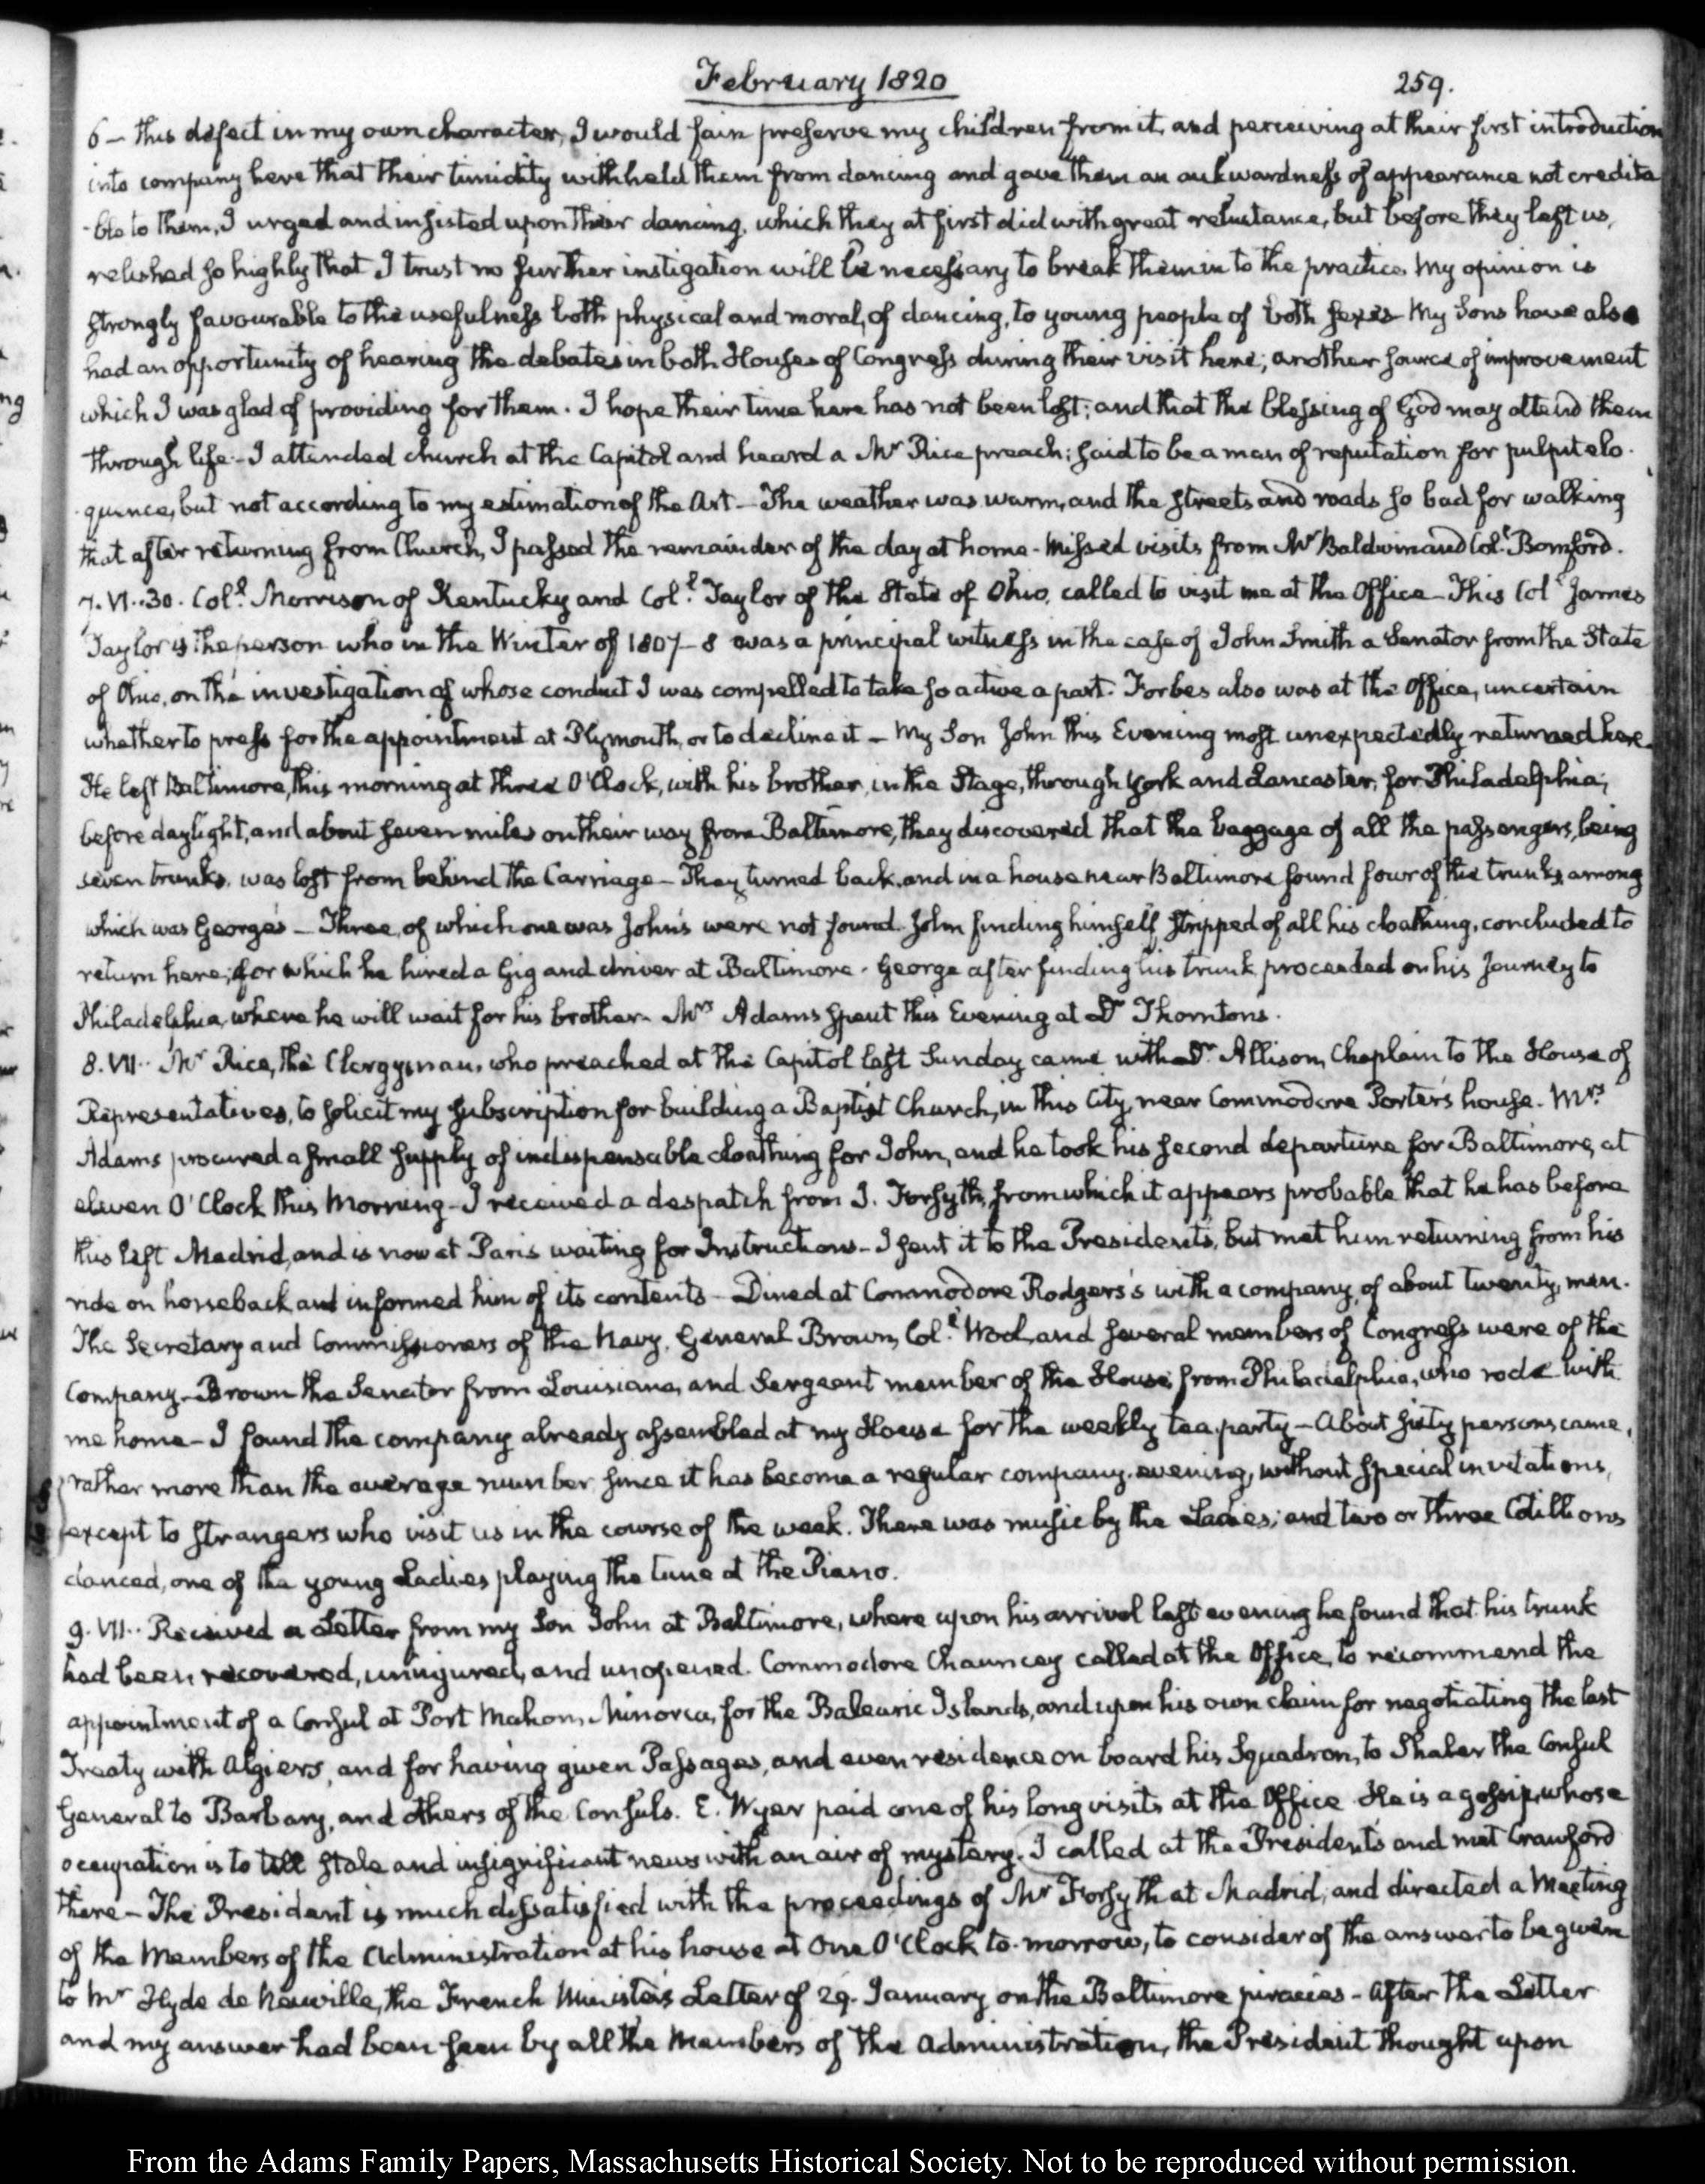 February 1820
259.
6 — this defect in my own character, I would fain preserve my children from it, and perceiving at their first introduction
into company here that their timidity withheld them from dancing and gave them an aukwardness of appearance not credita
-ble to them, I urged and insisted upon their dancing, which they at first did with great reluctance, but before they left us,
relished so highly that I trust no further instigation will be necessary to break them in to the practice. My opinion is
strongly favourable to the usefulness both physical and moral, of dancing, to young people of both sexes — My Sons have also
had an opportunity of hearing the debates in both Houses of Congress during their visit here; another source of improvement
which I was glad of providing for them. I hope their time here has not been lost; and that the blessing of God may attend them
through life — I attended church at the Capitol and heard a Mr Rice preach; said to be a man of reputation for pulpit elo-
-quence, but not according to my estimation of the Art — The weather was warm, and the streets and roads so bad for walking
that after returning from Church, I passed the remainder of the day at home — Missed visits from Mr Baldwin and Coll. Bomford.
7. VI..30. Coll. Morrison of Kentucky and Coll. Taylor of the State of Ohio, called to visit me at the Office — This Coll James
Taylor is the person who in the Winter of 1807–8 was a principal witness in the case of John Smith a Senator from the State
of Ohio, on the investigation of whose conduct I was compelled to take so active a part. Forbes also was at the Office, uncertain
whether to press for the appointment at Plymouth, or to decline it — My Son John this Evening most unexpectedly returned here.
He left Baltimore, this morning at three O'Clock, with his brother, in the Stage, through York and Lancaster, for Philadelphia;
before daylight, and about seven miles on their way from Baltimore, they discovered that the baggage of all the passengers, being
seven trunks, was lost from behind the Carriage — They turned back, and in a house near Baltimore found four of the trunks, among
which was George's — Three, of which one was John's were not found. John finding himself stripped of all his cloathing, concluded to
return here; for which he hired a Gig and driver at Baltimore. George after finding his trunk proceeded on his Journey to
Philadelphia, where he will wait for his brother. Mrs Adams spent this Evening at Dr Thornton's.
8. VII.. Mr Rice, the Clergyman, who preached at the Capitol last Sunday came with Dr Allison, Chaplain to the House of
Representatives, to solicit my subscription for building a Baptist Church, in this City, near Commodore Porter's house. Mrs
Adams procured a small supply of indispensable cloathing for John, and he took his second departure for Baltimore, at
eleven O'Clock this Morning — I received a despatch from J. Forsyth, from which it appears probable that he has before
this left Madrid, and is now at Paris waiting for Instructions — I sent it to the President's, but met him returning from his
ride on horseback and informed him of its contents — Dined at Commodore Rodgers's with a company, of about twenty, men.
The Secretary and Commissioners of the Navy, General Brown, Coll. Wool, and several members of Congress were of the
Company — Brown the Senator from Louisiana, and Sergeant member of the House, from Philadelphia, who rode with
me home — I found the company already assembled at my House for the weekly tea-party — About sixty persons came,
rather more than the average number since it has become a regular company evening, without special invitations,
except to strangers who visit us in the course of the week. There was music by the Ladies; and two or three Cotillions
danced, one of the young Ladies playing the tune at the Piano.
9. VII.. Received a Letter from my Son John at Baltimore, where upon his arrival last evening he found that his trunk
had been recovered, uninjured, and unopened. Commodore Chauncey called at the Office, to recommend the
appointment of a Consul at Port Mahon, Minorca, for the Balearic Islands, and upon his own claim for negotiating the last
Treaty with Algiers, and for having given Passages, and even residence on board his Squadron, to Shaler the Consul
General to Barbary, and others of the Consuls. E. Wyer paid one of his long visits at the Office He is a gossip, whose
occupation is to tell stale and insignificant news with an air of mystery. I called at the President's and met Crawford
there — The President is much dissatisfied with the proceedings of Mr Forsyth at Madrid, and directed a Meeting
of the Members of the Administration at his house at One O'Clock to-morrow, to consider of the answer to be given
to Mr Hyde de Neuville, the French Minister's Letter of 29. January on the Baltimore piracies — After the Letter
and my answer had been seen by all the Members of the Administration, the President thought upon
From the Adams Family Papers, Massachusetts Historical Society. Not to be reproduced without permission.